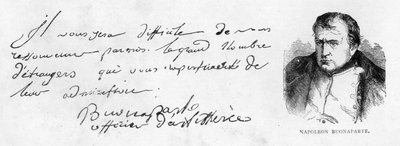 Il vous sera difficile de vous
ressouvenir parmis le grand nombre
d'étrangers qui vous importunent de
leur admiration
Buonaparte
officier d'artillerie
NAPOLEON BUONAPARTE.